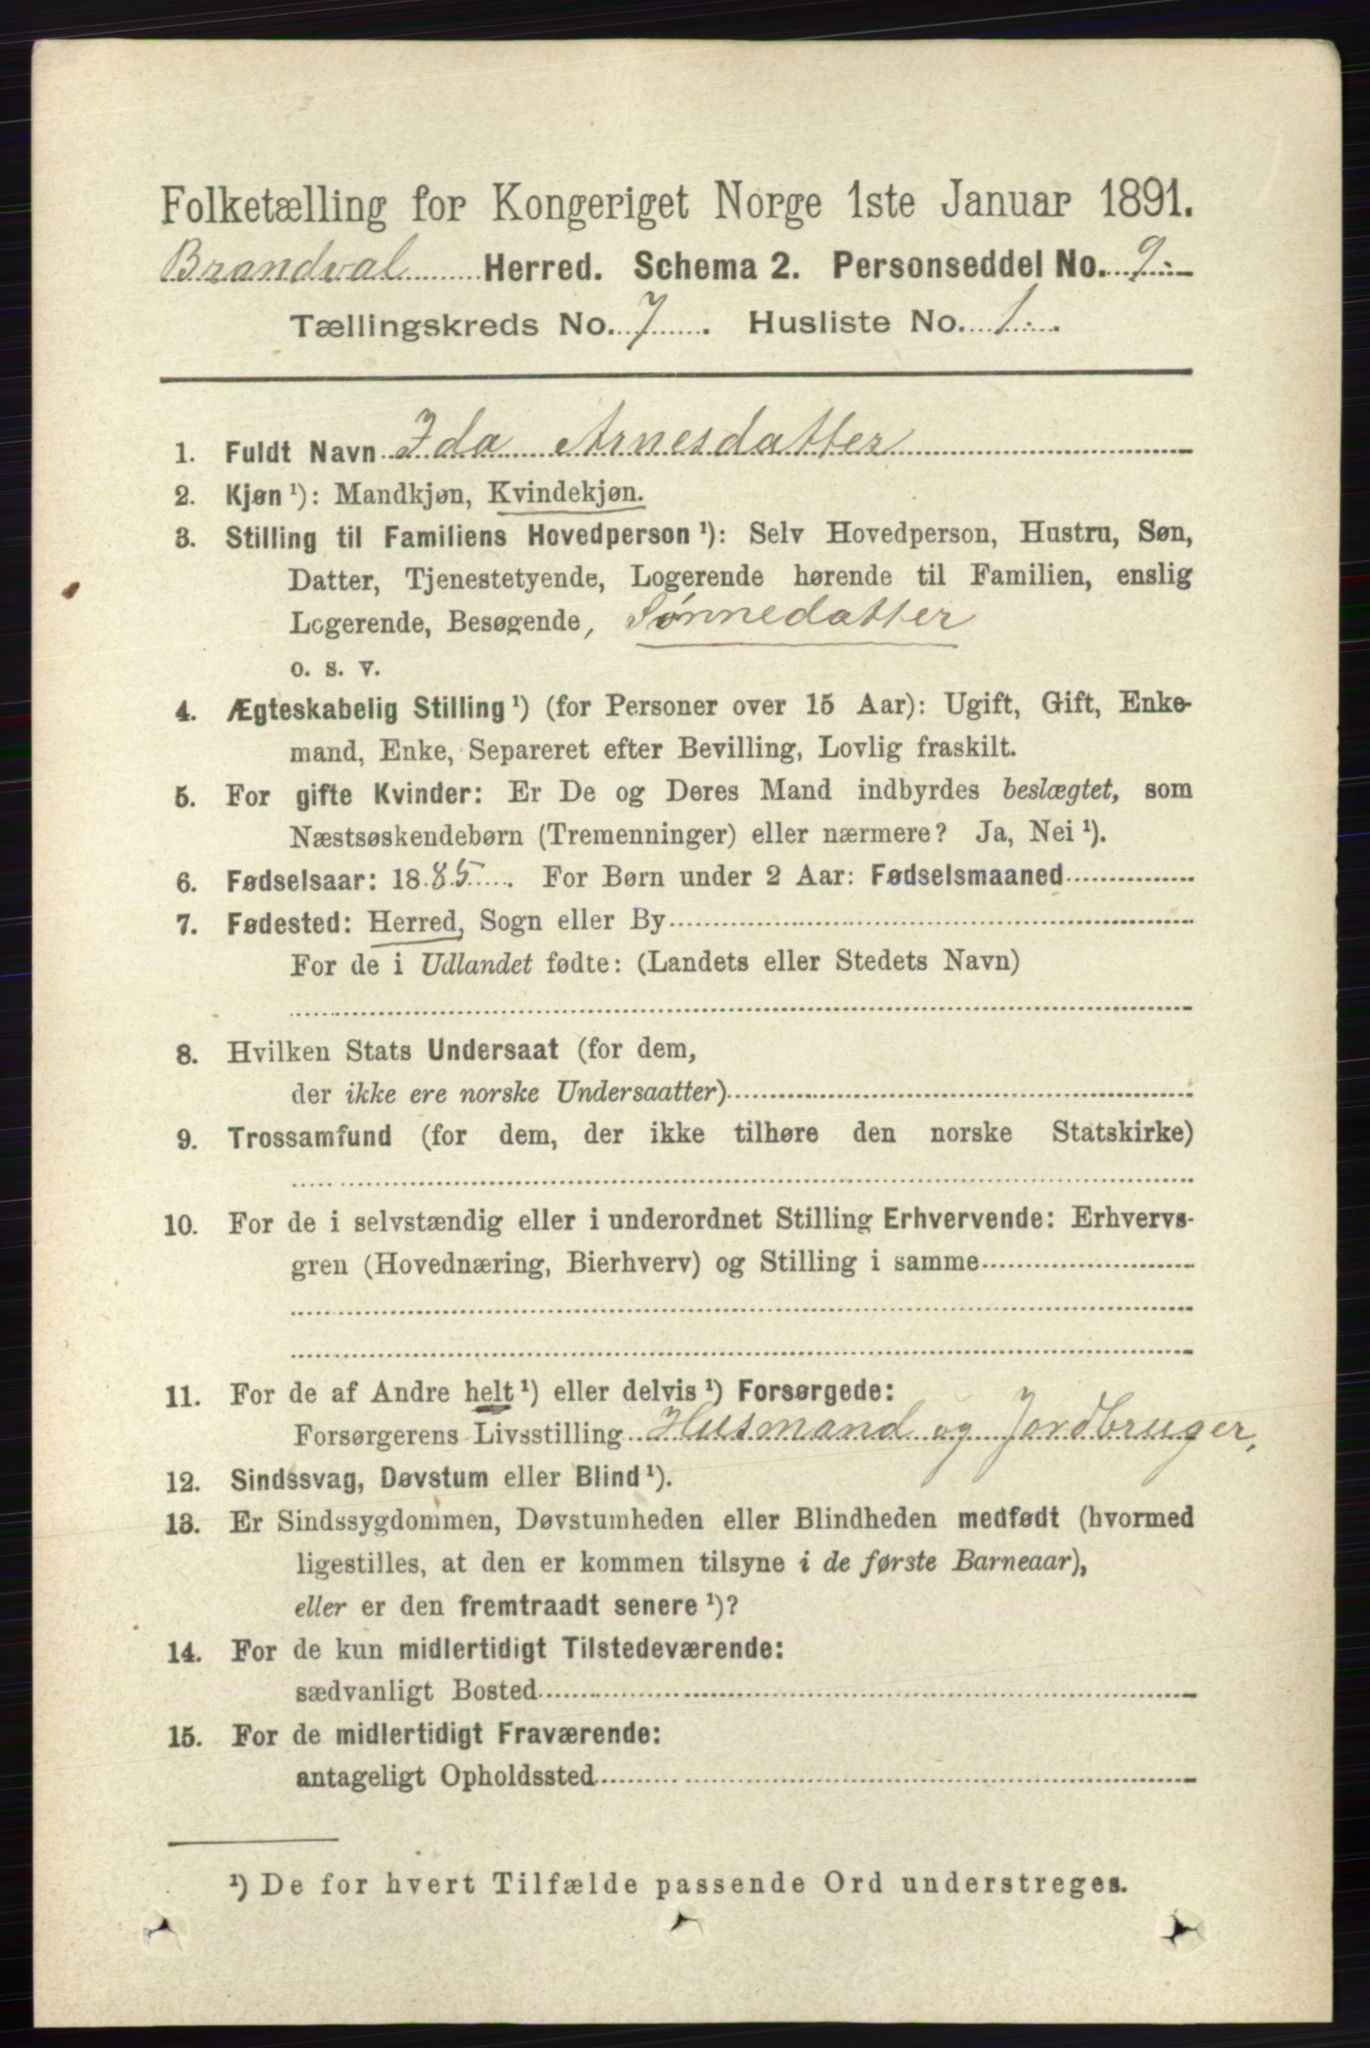 Folketælling for Kongeriget Norge 1ste Januar 1891.
Brandval Herred. Schema 2. Personseddel No. 9.
Tællingskreds No. 7. Husliste No. 1.
1. Fuldt Navn Ida Arnesdatter
2. Kjøn ¹): Mandkjøn, Kvindekjøn.
3. Stilling til Familiens Hovedperson ¹): Selv Hovedperson, Hustru, Søn,
Datter, Tjenestetyende, Logerende hørende til Familien, enslig
Logerende, Besøgende, Sønnedatter
o. s. v.
4. Ægteskabelig Stilling ¹) (for Personer over 15 Aar): Ugift, Gift, Enke-
mand, Enke, Separeret efter Bevilling, Lovlig fraskilt.
5. For gifte Kvinder: Er De og Deres Mand indbyrdes beslægtet, som
Næstsøskendebørn (Tremenninger) eller nærmere? Ja, Nei ¹).
6. Fødselsaar: 1885. For Børn under 2 Aar: Fødselsmaaned
7. Fødested: Herred, Sogn eller By
For de i Udlandet fødte: (Landets eller Stedets Navn)
8. Hvilken Stats Undersaat (for dem,
der ikke ere norske Undersaatter)
9. Trossamfund (for dem, der ikke tilhøre den norske Statskirke)
10. For de i selvstændig eller i underordnet Stilling Erhvervende: Erhvervs-
gren (Hovednæring, Bierhverv) og Stilling i samme
11. For de af Andre helt ¹) eller delvis ¹) Forsørgede:
Forsørgerens Livsstilling Husmand og Jordbruger,
12. Sindssvag, Døvstum eller Blind ¹).
13. Er Sindssygdommen, Døvstumheden eller Blindheden medfødt (hvormed
ligestilles, at den er kommen tilsyne i de første Barneaar),
eller er den fremtraadt senere ¹)?
14. For de kun midlertidigt Tilstedeværende:
sædvanligt Bosted
15. For de midlertidigt Fraværende:
antageligt Opholdssted
¹) De for hvert Tilfælde passende Ord understreges.